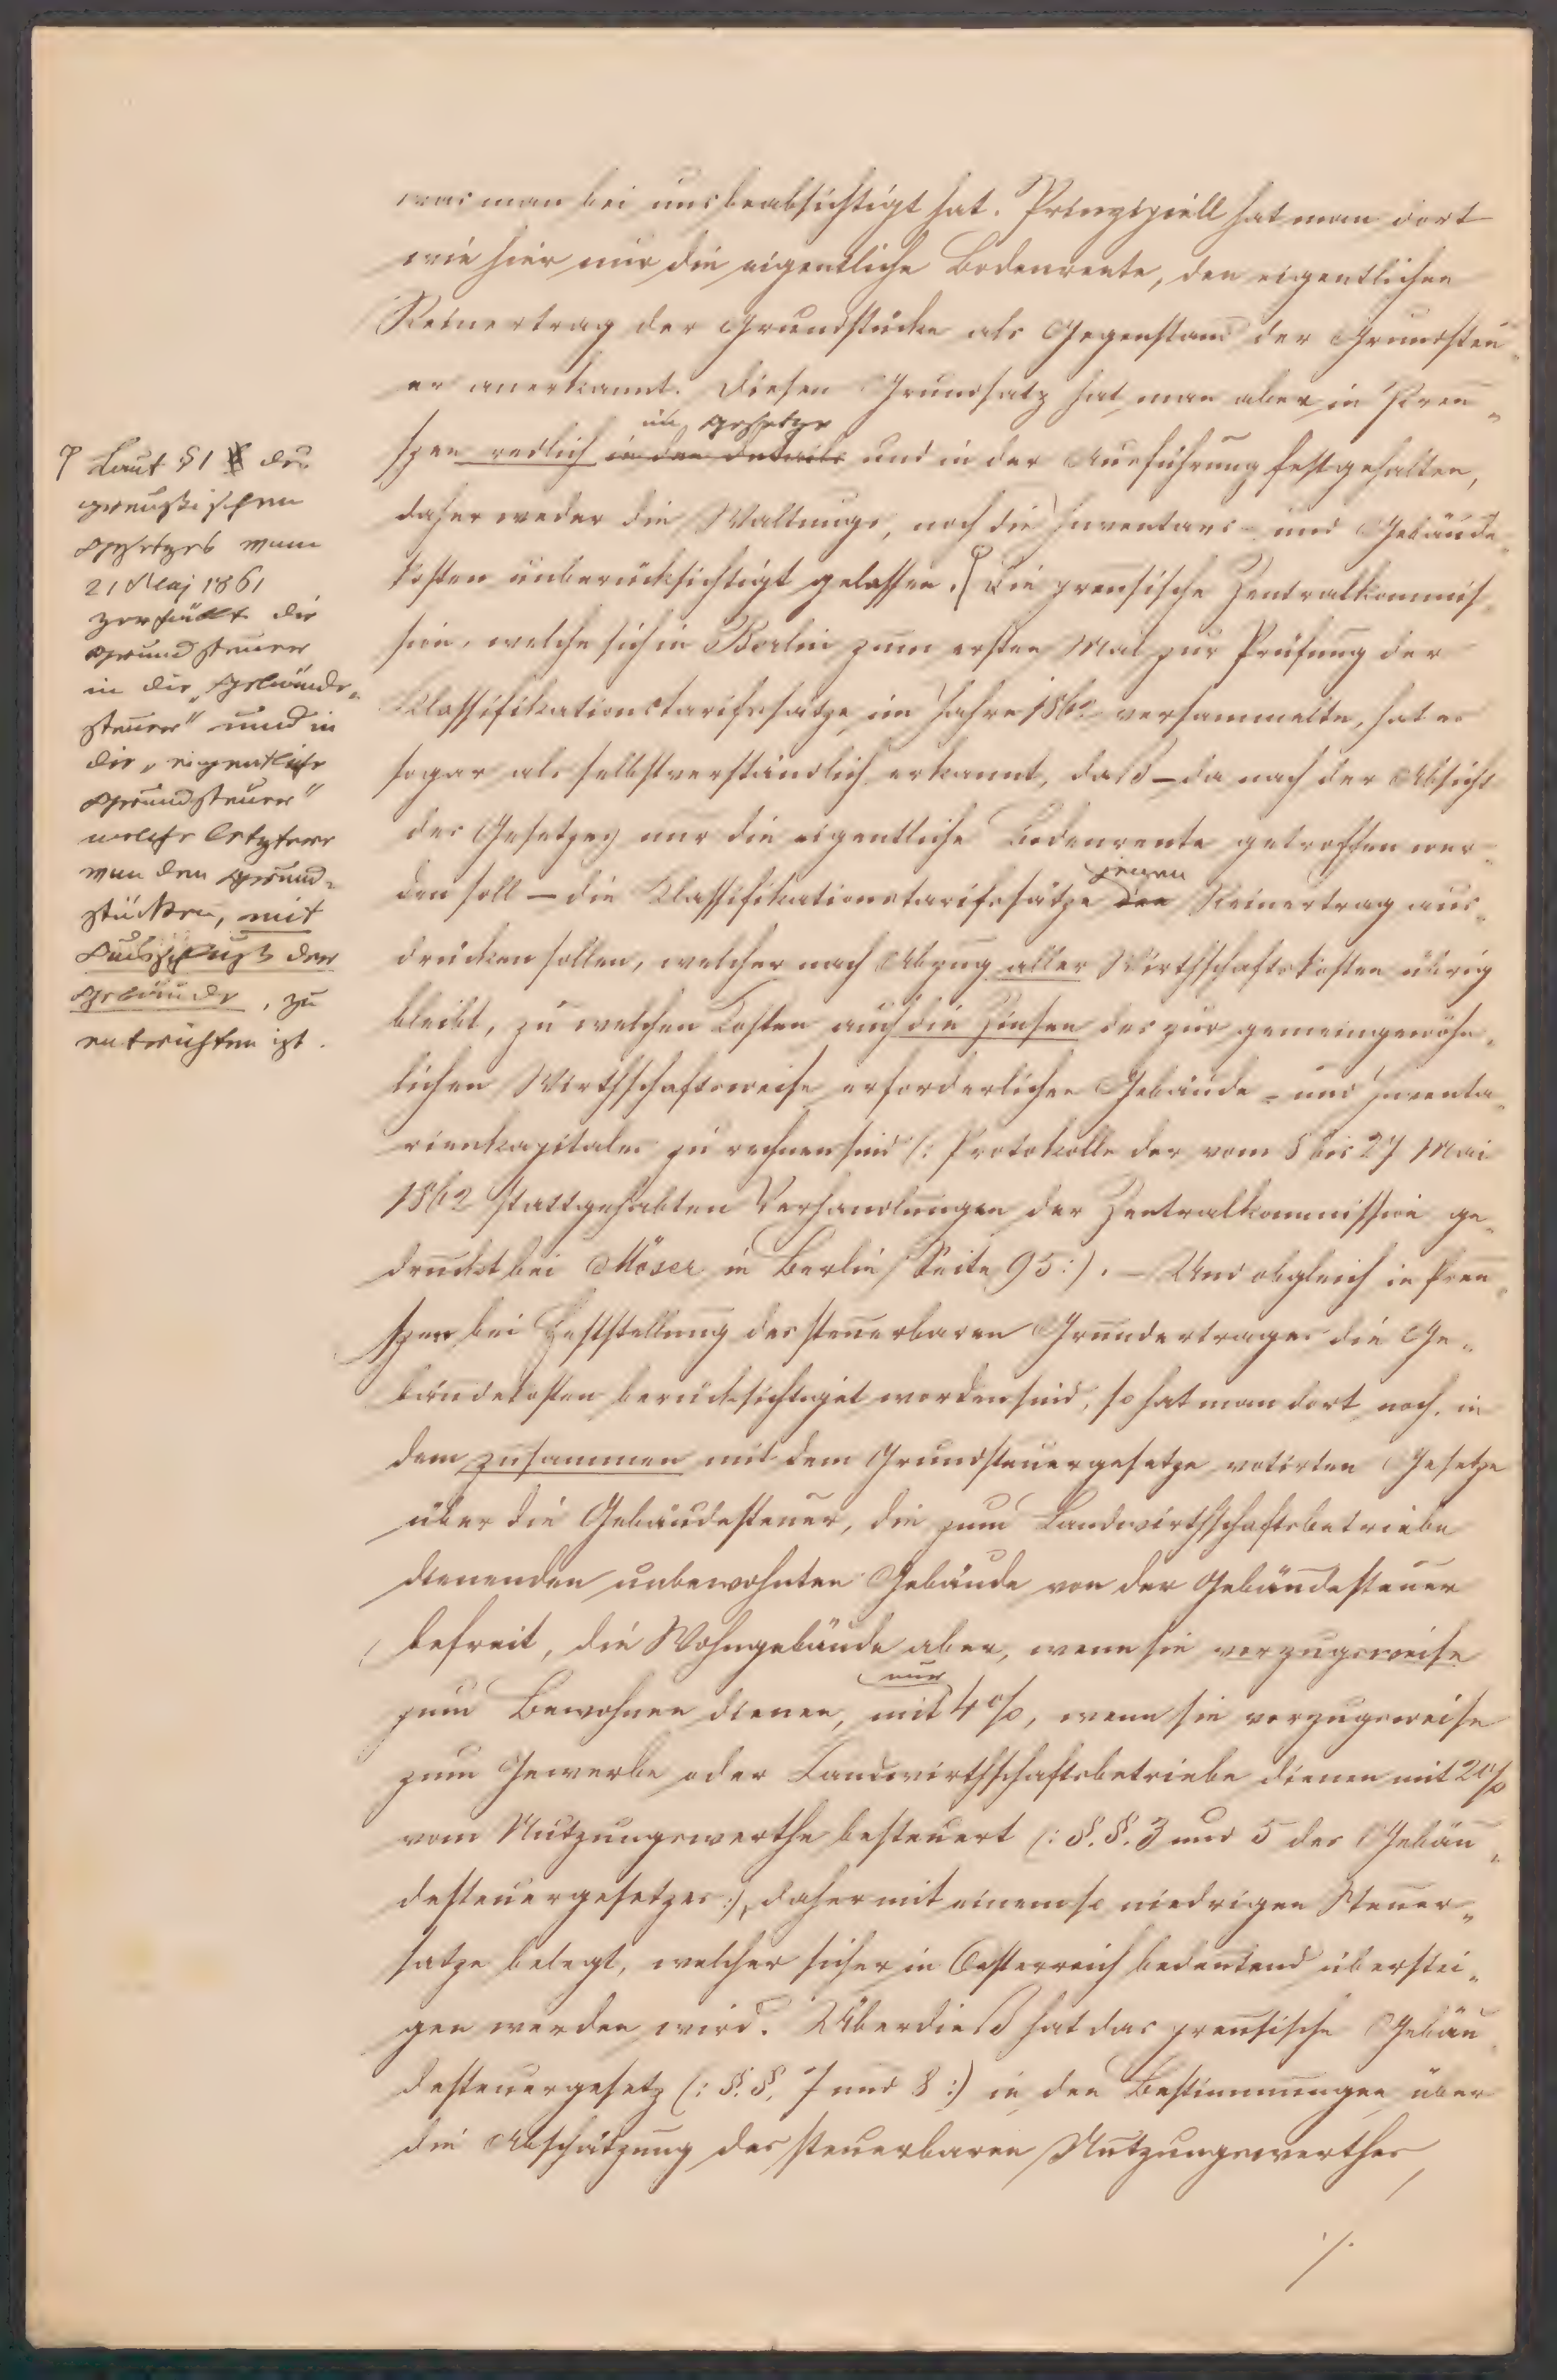 was man bei uns beabsichtigt hat. Prinzipiell hat man dort
wie hier nur die eigentliche Bodenrente, den eigentlichen
Reinertrag der Grundstücke als Gegenstand der Grundsteu„
er anerkannt. Diesen Grundsatz hat man aber in Preu„
im Gesetze
szen redlich in den Details und in der Ausführung festgehalten,
daher weder die Waltungs, noch die Inventars- und Gebäude„
kosten unberücksichtigt gelassen. Die preusische Zentralkommis„
sion, welche sich in Berlin zum ersten Mal zur Prüfung der
Klassifikationstarifssätze im Jahre 1862 versammelte, hat es
sogar als selbstverständlich erkannt, daß – da nach der Absicht
des Gesetzes nur die eigentliche Bodenrente getroffen wer„
jenen
den soll – die Klassifikationstarifssätze den Reinertrag aus„
drücken sollen, welcher nach Abzug aller Wirthschaftskosten übrig
bleibt, zu welchen Kosten auch die Zinsen des zur gemeingewöhn„
lichen Wirthschaftsweise erforderlichen Gebäude- und Inventa„
rienkapitales zu rechnen sind (: Protokolle der vom 8 bis 27 Mai
1862 stattgehabten Verhandlungen der Zentralkommission ge„
druckt bei Möser in Berlin Seite 95:). – Und obgleich in Preu„
szen bei Feststellung des steuerbaren Grundertrages die Ge„
bäudekosten berücksichtiget worden sind, so hat man dort noch in
dem zusammen mit dem Grundsteuergesetze votirten Gesetze
über die Gebäudesteuer, die zum Landwirthschaftsbetriebe
dienenden unbewohnten Gebäude von der Gebäudesteuer
befreit, die Wohngebäude aber, wenn sie vorzugsweise
nur
zum Bewohnen dienen, mit 4%, wenn sie vorzugsweise
zum Gewerbe oder Landwirthschaftsbetriebe dienen mit 2%
vom Nutzungswerthe besteuert (: §.§. 3 und 5 des Gebäu„
desteuergesetzes :), daher mit einem so niedrigen Steuer„
satze belegt, welcher sicher in Oesterreich bedeutend überstei„
gen werden wird. Überdieß hat das preusische Gebäu„
desteuergesetz (: §.§. 7 und 8 :) in den Bestimmungen über
die Abschätzung des steuerbaren Nutzungswerthes
./.
Laut § 1 des
preußischen
Gesetzes vom
21 Maj 1861
zerfällt die
Grundsteuer
in die „Gebäude„
steuer" und in
die „eigentliche
Grundsteuer"
welche letztere
von den Grund„
stücken, mit
Ausschluß der
Gebäude, zu
entrichten ist.